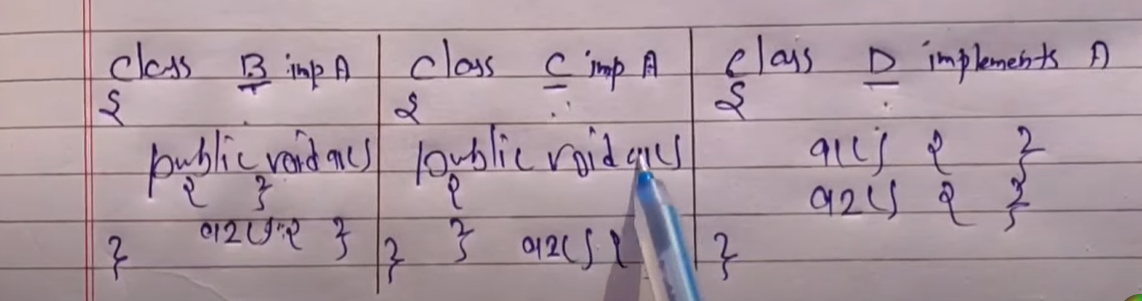 class B imp A
{
public void a1()
{ }
a2() { }
}
class C imp A
{
public void a1()
{
} a2() {
}
class D implements A
{
a1() { }
a2() { }
}